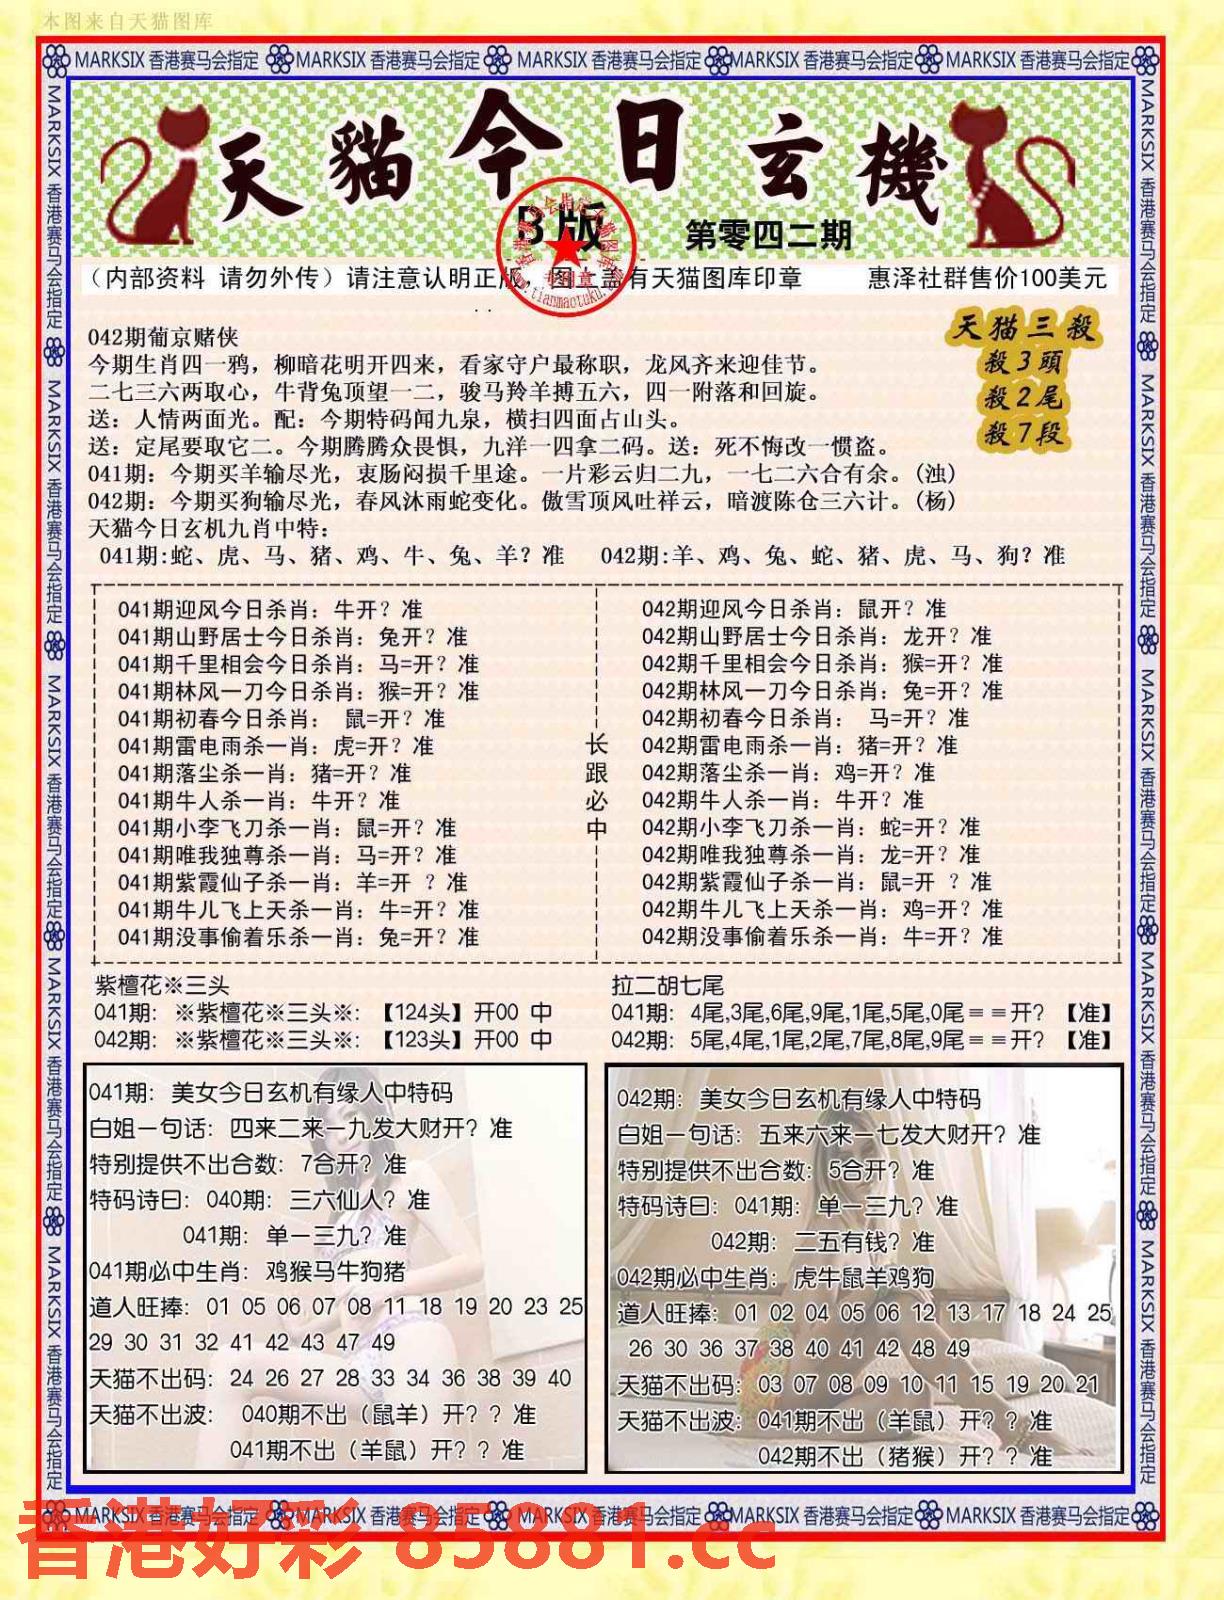 本图来自天猫图库
MARKSIX 香港赛马会指定 MARKSIX 香港赛马会指定 MARKSIX 香港赛马会指定 MARKSIX 香港赛马会指定 MARKSIX 香港赛马会指定
天貓今日玄機
B版
第零四二期
（内部资料 请勿外传）请注意认明正版 图上盖有天猫图库印章 惠泽社群售价100美元
专用章
www.tianmaotuku.com
天猫三殺
殺3頭
殺2尾
殺7段
042期葡京赌侠
今期生肖四一鸦，柳暗花明开四来，看家守户最称职，龙风齐来迎佳节。
二七三六两取心，牛背兔顶望一二，骏马羚羊搏五六，四一附落和回旋。
送：人情两面光。配：今期特码闻九泉，横扫四面占山头。
送：定尾要取它二。今期腾腾众畏惧，九洋一四拿二码。送：死不悔改一惯盗。
041期：今期买羊输尽光，衷肠闷损千里途。一片彩云归二九，一七二六合有余。(浊)
042期：今期买狗输尽光，春风沐雨蛇变化。傲雪顶风吐祥云，暗渡陈仓三六计。(杨)
天猫今日玄机九肖中特：
041期:蛇、虎、马、猪、鸡、牛、兔、羊？准 042期:羊、鸡、兔、蛇、猪、虎、马、狗？准
041期迎风今日杀肖：牛开？准
041期山野居士今日杀肖：兔开？准
041期千里相会今日杀肖：马=开？准
041期林风一刀今日杀肖：猴=开？准
041期初春今日杀肖： 鼠=开？准
041期雷电雨杀一肖：虎=开？准
041期落尘杀一肖：猪=开？准
041期牛人杀一肖：牛开？准
041期小李飞刀杀一肖：鼠=开？准
041期唯我独尊杀一肖：马=开？准
041期紫霞仙子杀一肖：羊=开 ？准
041期牛儿飞上天杀一肖：牛=开？准
041期没事偷着乐杀一肖：兔=开？准
长跟必中
042期迎风今日杀肖：鼠开？准
042期山野居士今日杀肖：龙开？准
042期千里相会今日杀肖：猴=开？准
042期林风一刀今日杀肖：兔=开？准
042期初春今日杀肖： 马=开？准
042期雷电雨杀一肖：猪=开？准
042期落尘杀一肖：鸡=开？准
042期牛人杀一肖：牛开？准
042期小李飞刀杀一肖：蛇=开？准
042期唯我独尊杀一肖：龙=开？准
042期紫霞仙子杀一肖：鼠=开 ？准
042期牛儿飞上天杀一肖：鸡=开？准
042期没事偷着乐杀一肖：牛=开？准
紫檀花※三头
041期：※紫檀花※三头※：【124头】开00 中
042期：※紫檀花※三头※：【123头】开00 中
拉二胡七尾
041期：4尾,3尾,6尾,9尾,1尾,5尾,0尾＝＝开？【准】
042期：5尾,4尾,1尾,2尾,7尾,8尾,9尾＝＝开？【准】
041期：美女今日玄机有缘人中特码
白姐一句话：四来二来一九发大财开？准
特别提供不出合数：7合开？准
特码诗曰：040期：三六仙人？准
041期：单一三九？准
041期必中生肖：鸡猴马牛狗猪
道人旺捧：01 05 06 07 08 11 18 19 20 23 25
29 30 31 32 41 42 43 47 49
天猫不出码：24 26 27 28 33 34 36 38 39 40
天猫不出波： 040期不出（鼠羊）开？？准
041期不出（羊鼠）开？？准
042期：美女今日玄机有缘人中特码
白姐一句话：五来六来一七发大财开？准
特别提供不出合数：5合开？准
特码诗曰：041期：单一三九？准
042期：二五有钱？准
042期必中生肖：虎牛鼠羊鸡狗
道人旺捧：01 02 04 05 06 12 13 17 18 24 25
26 30 36 37 38 40 41 42 48 49
天猫不出码：03 07 08 09 10 11 15 19 20 21
天猫不出波：041期不出（羊鼠）开？？准
042期不出（猪猴）开？？准
MARKSIX 香港赛马会指定 MARKSIX 香港赛马会指定 MARKSIX 香港赛马会指定 MARKSIX 香港赛马会指定 MARKSIX 香港赛马会指定
MARKSIX 香港赛马会指定 MARKSIX 香港赛马会指定 MARKSIX 香港赛马会指定 MARKSIX 香港赛马会指定 MARKSIX 香港赛马会指定
MARKSIX 香港赛马会指定 MARKSIX 香港赛马会指定 MARKSIX 香港赛马会指定 MARKSIX 香港赛马会指定 MARKSIX 香港赛马会指定
香港好彩 85881.cc